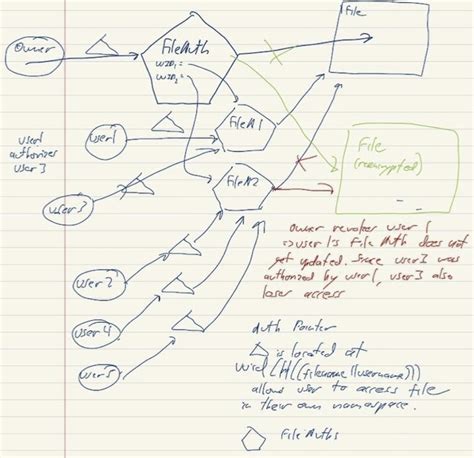 File
Owner
FileAuth
uuid1=
uuid2=
user1
FileA1
user1
authorizes
user3
File
(reencrypted)
FileA2
user3
owner revokes user 1
=> user 1's File Auth does not
get updated. Since user3 was
authorized by user1, user3 also
loses access
user2
user4
user5
Auth Pointer
is located at
uuid(H((filename||username)))
allows user to access file
in their own namespace.
FileAuths